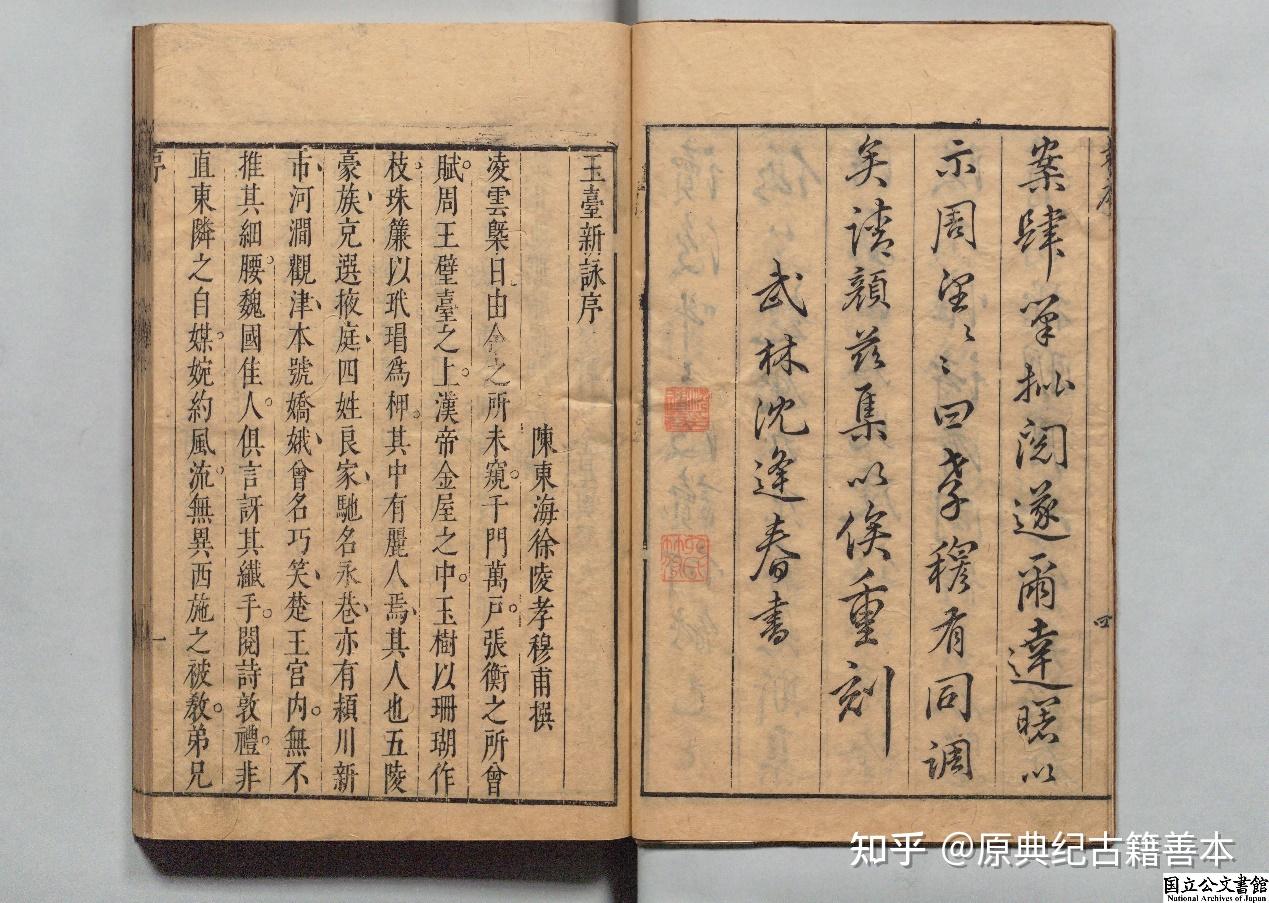 案肆筆批閱遂爾達曙以
示周望〻〻曰孝穆有同調
矣請顏茲集以俟重刻
武林沈逢春書
四
玉臺新詠序
陳東海徐陵孝穆甫撰
凌雲槩日由余之所未窺。千門萬戶。張衡之所曾
賦。周王璧臺之上。漢帝金屋之中。玉樹以珊瑚作
枝、珠簾以玳瑁爲柙。其中有麗人焉、其人也五陵
豪族、充選掖庭、四姓良家、馳名永巷、亦有頴川新
市、河澗觀津、本號嬌娥、曾名巧笑、楚王宮内。無不
推其細腰。魏國佳人。俱言訝其纖手。閱詩敦禮。非
直東隣之自媒。婉約風流。無異西施之被敎。弟兄
序
一
知乎 @原典纪古籍善本
国立公文書館
National Archives of Japan